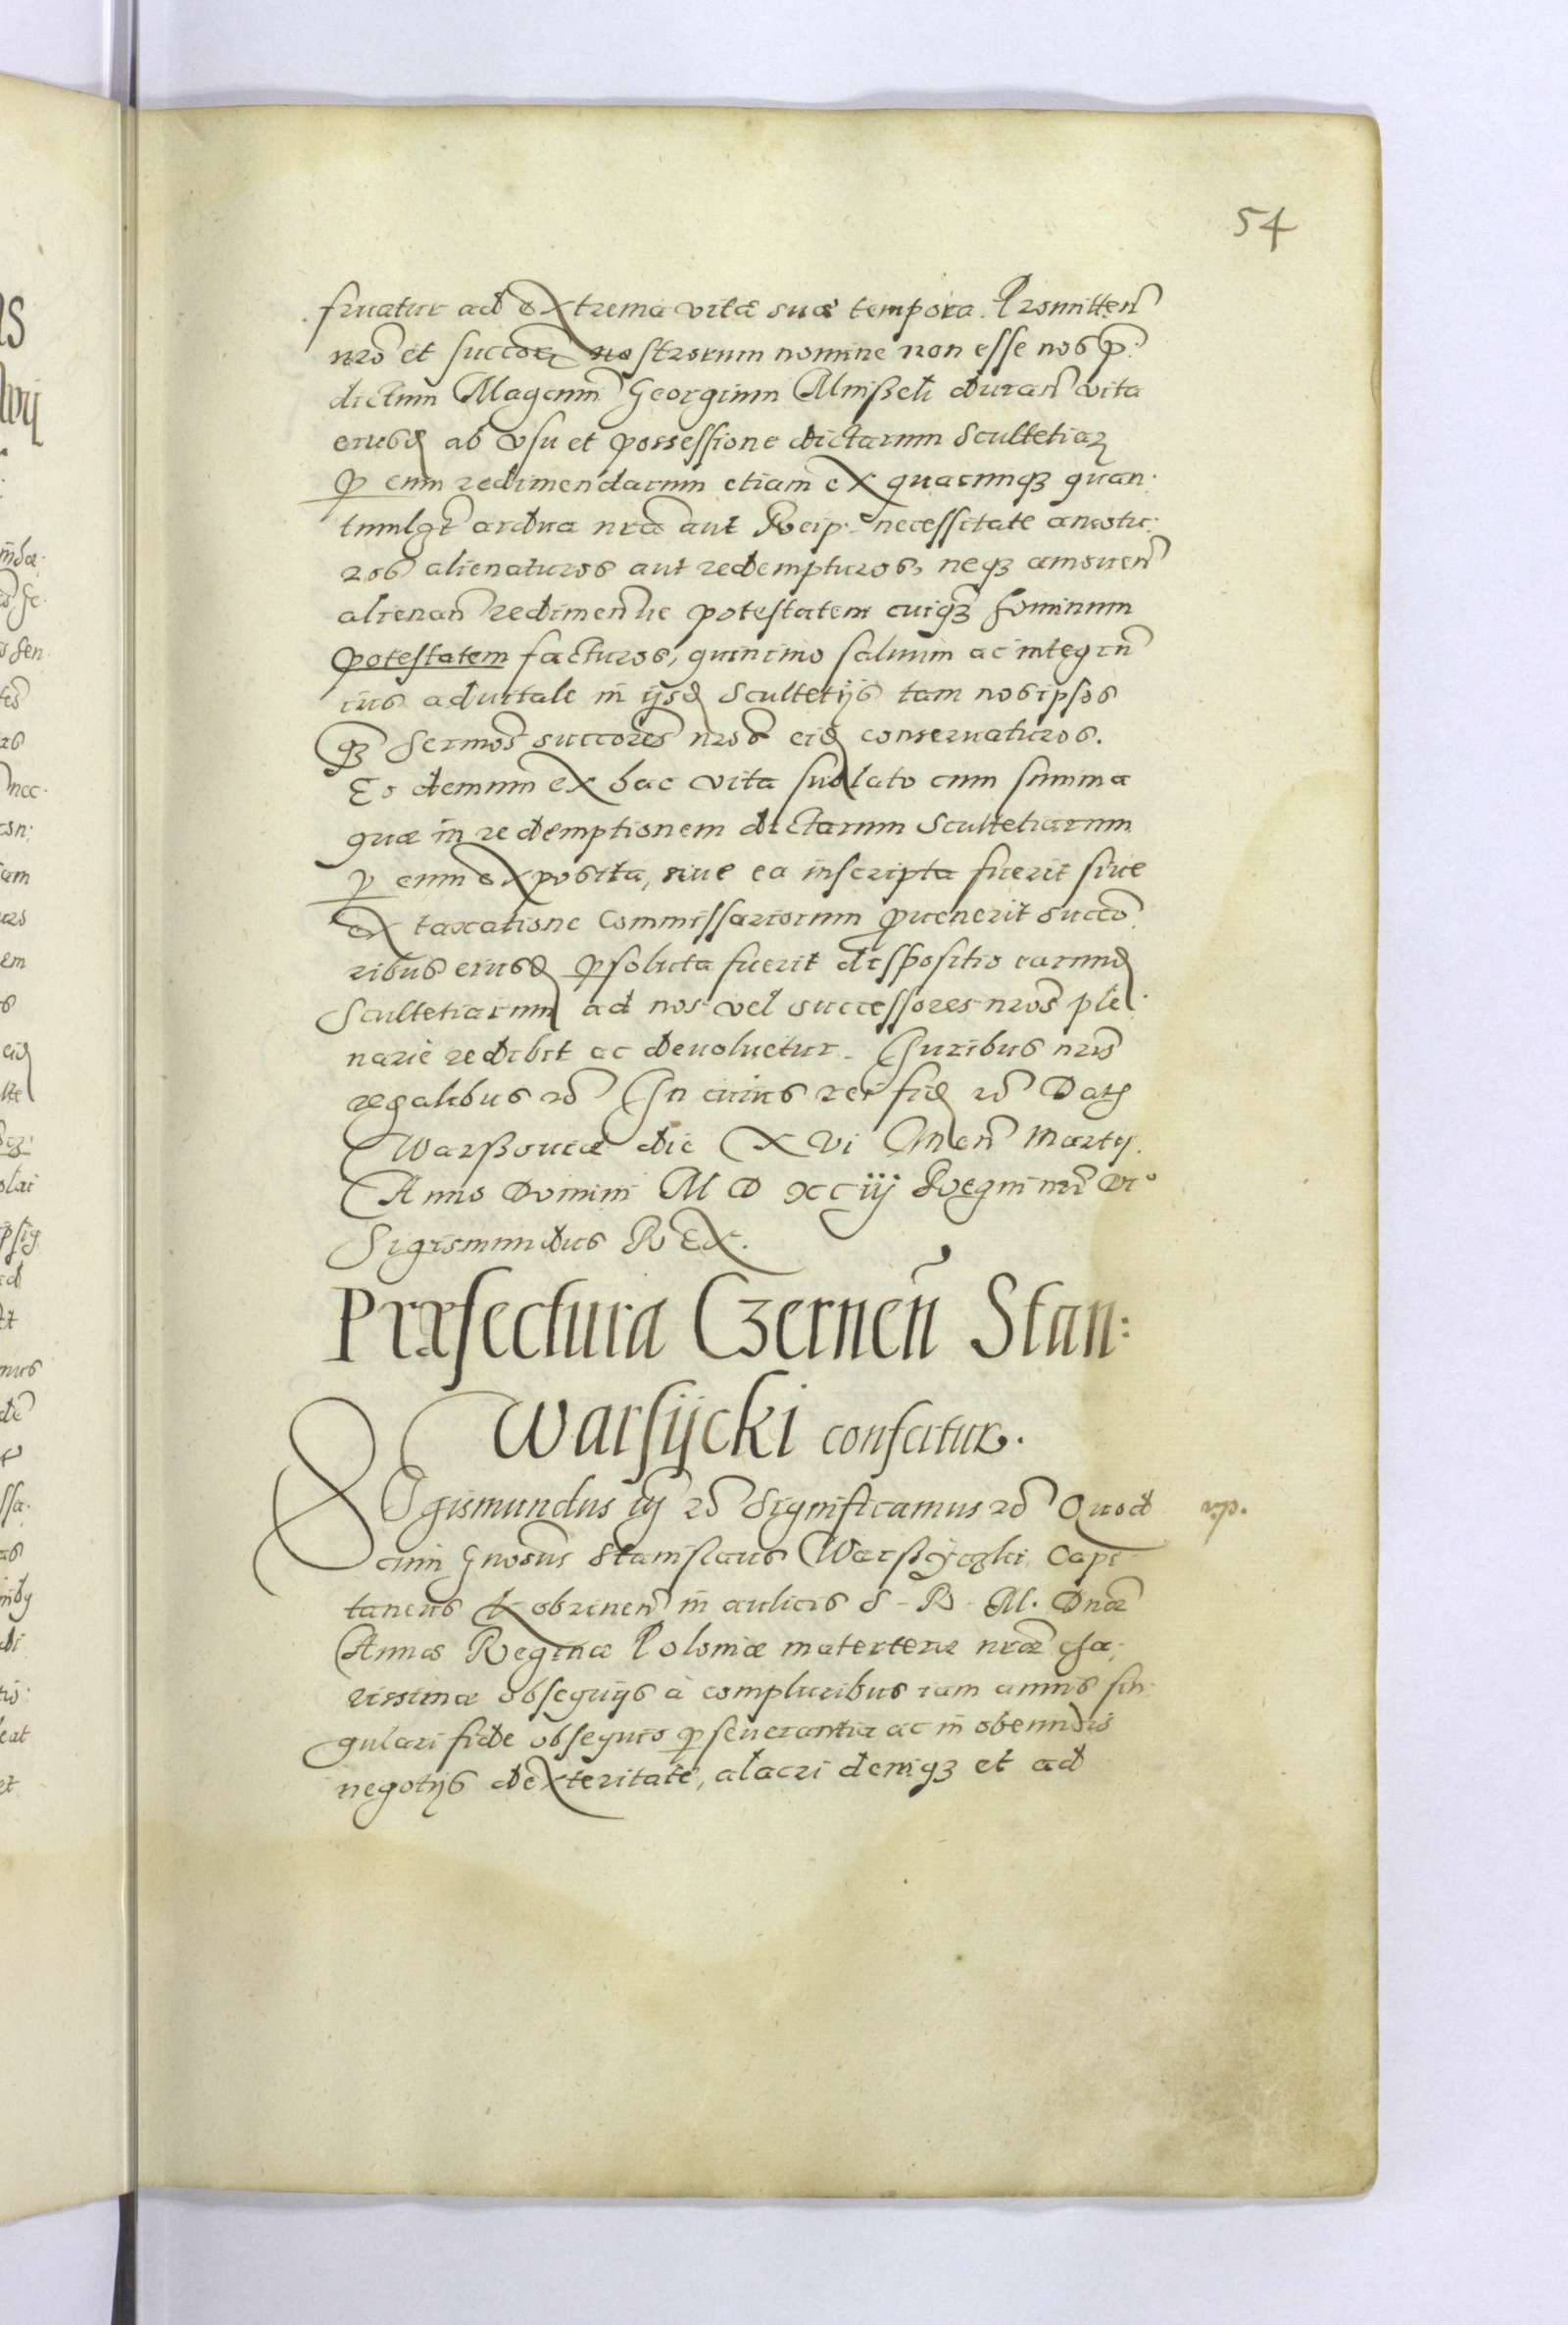 54
fruatur ad extrema vitæ suæ tempora. Promitten̄
nr̄o et succōrꝝ nostrorum nomine non esse nos p̄:
dictum Magcum̄ Georgium Mnißeḱ duran̄ vita
eiusđ ab vsu et possessione dictarum Scultetiaꝝ
ꝑ eum redimendarum etiam ex quacunqꝫ quan:
tumlg̃t ardua nr̄a aut Reip: necessitate amotu:
ros alienaturos aut redempturos, neqꝫ amouen̄
alienan̄ redimen̄ue potestatem cuiqꝫ hominum
potestatem facturos, quinimo saluum ac integrū
ius aduitale in ijsđ Scultetijs tam nos ipsos
qꝫ Sermos̄ succōres nr̄os eiđ conseruaturos.
Eo demum ex hac vita sublato cum summa
quæ in redemptionem dictarum Scultetiarum
ꝑ eum exposita, siue ea inscripta fuerit siue
ex taxatione Commissariorum ꝓuenerit succō
ribus eiusđ ꝑsoluta fuerit dispositio earunđ
Scultetiarum ad nos vel successores nr̄os ple:
narie redibit ac deuoluetur. Juribus nr̄is
regalibus ꝛc̄ In cuius rei fiđ ꝛc̄ Datꝫ
Warßouiæ die XVI Men̄ Martij.
Anno Domini M D XC iij Regni nr̄i Vtº
Sigismundus REX.
Præfectura Czernen̄ Stan:
Warsijcki confertur.
SIgismundus iij ꝛc̄ Significamus ꝛc̄ Quod
cum Gnosus̄ Stanislaus Warßÿczki Capi:
taneus Kobrinen̄ in aulicis S. R. M. Dnǣ
Annæ Reginæ Poloniæ materteræ nr̄æ cha:
rissimæ obsequijs à compluribus iam annis sin:
gulari fide obsequio ꝑseuerantia ac in obeundis
negotijs dexteritate, alacri deniqꝫ et ad